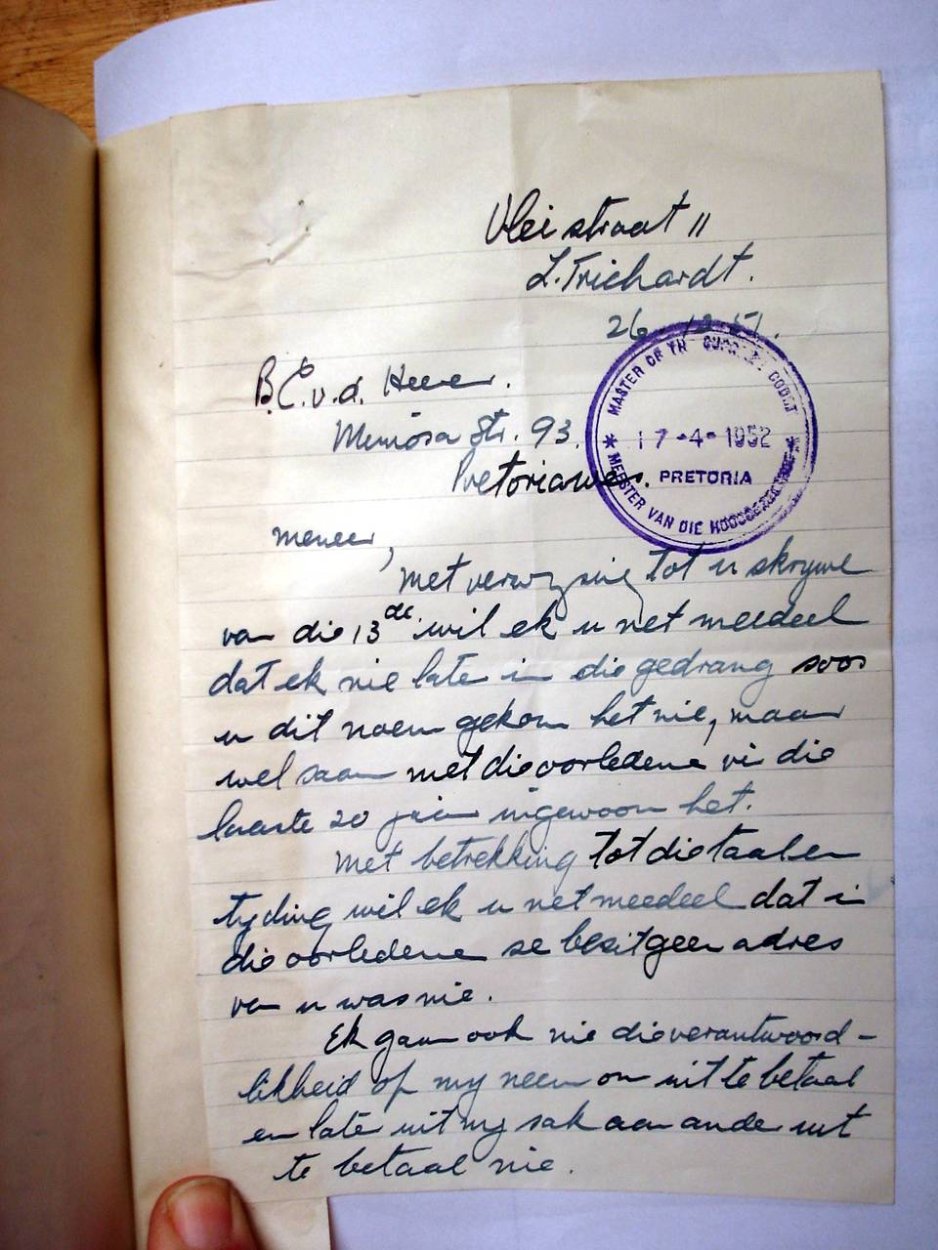 Vleistraat 11
L. Trichardt.
26.12.51.
B.E.v.d. Heever.
Mimosa Str. 93.
Pretoria wes.
MASTER OF THE SUPREME COURT
17-4-1952
PRETORIA
MEESTER VAN DIE HOOGGEREGSHOF
Meneer,
Met verwysing tot u skrywe
van die 13de wil ek u net meedeel
dat ek nie later in die gedrang soos
u dit noem gekom het nie, maar
wel saam met die oorledene vir die
laaste 20 jaar ingewoon het.
Met betrekking tot die taal en
tyding wil ek u net meedeel dat in
die oorledene se besit geen adres
van u was nie.
Ek gaan ook nie die verantwoord-
likheid op my neem om uit te betaal
en later uit my sak aan ander uit
te betaal nie.